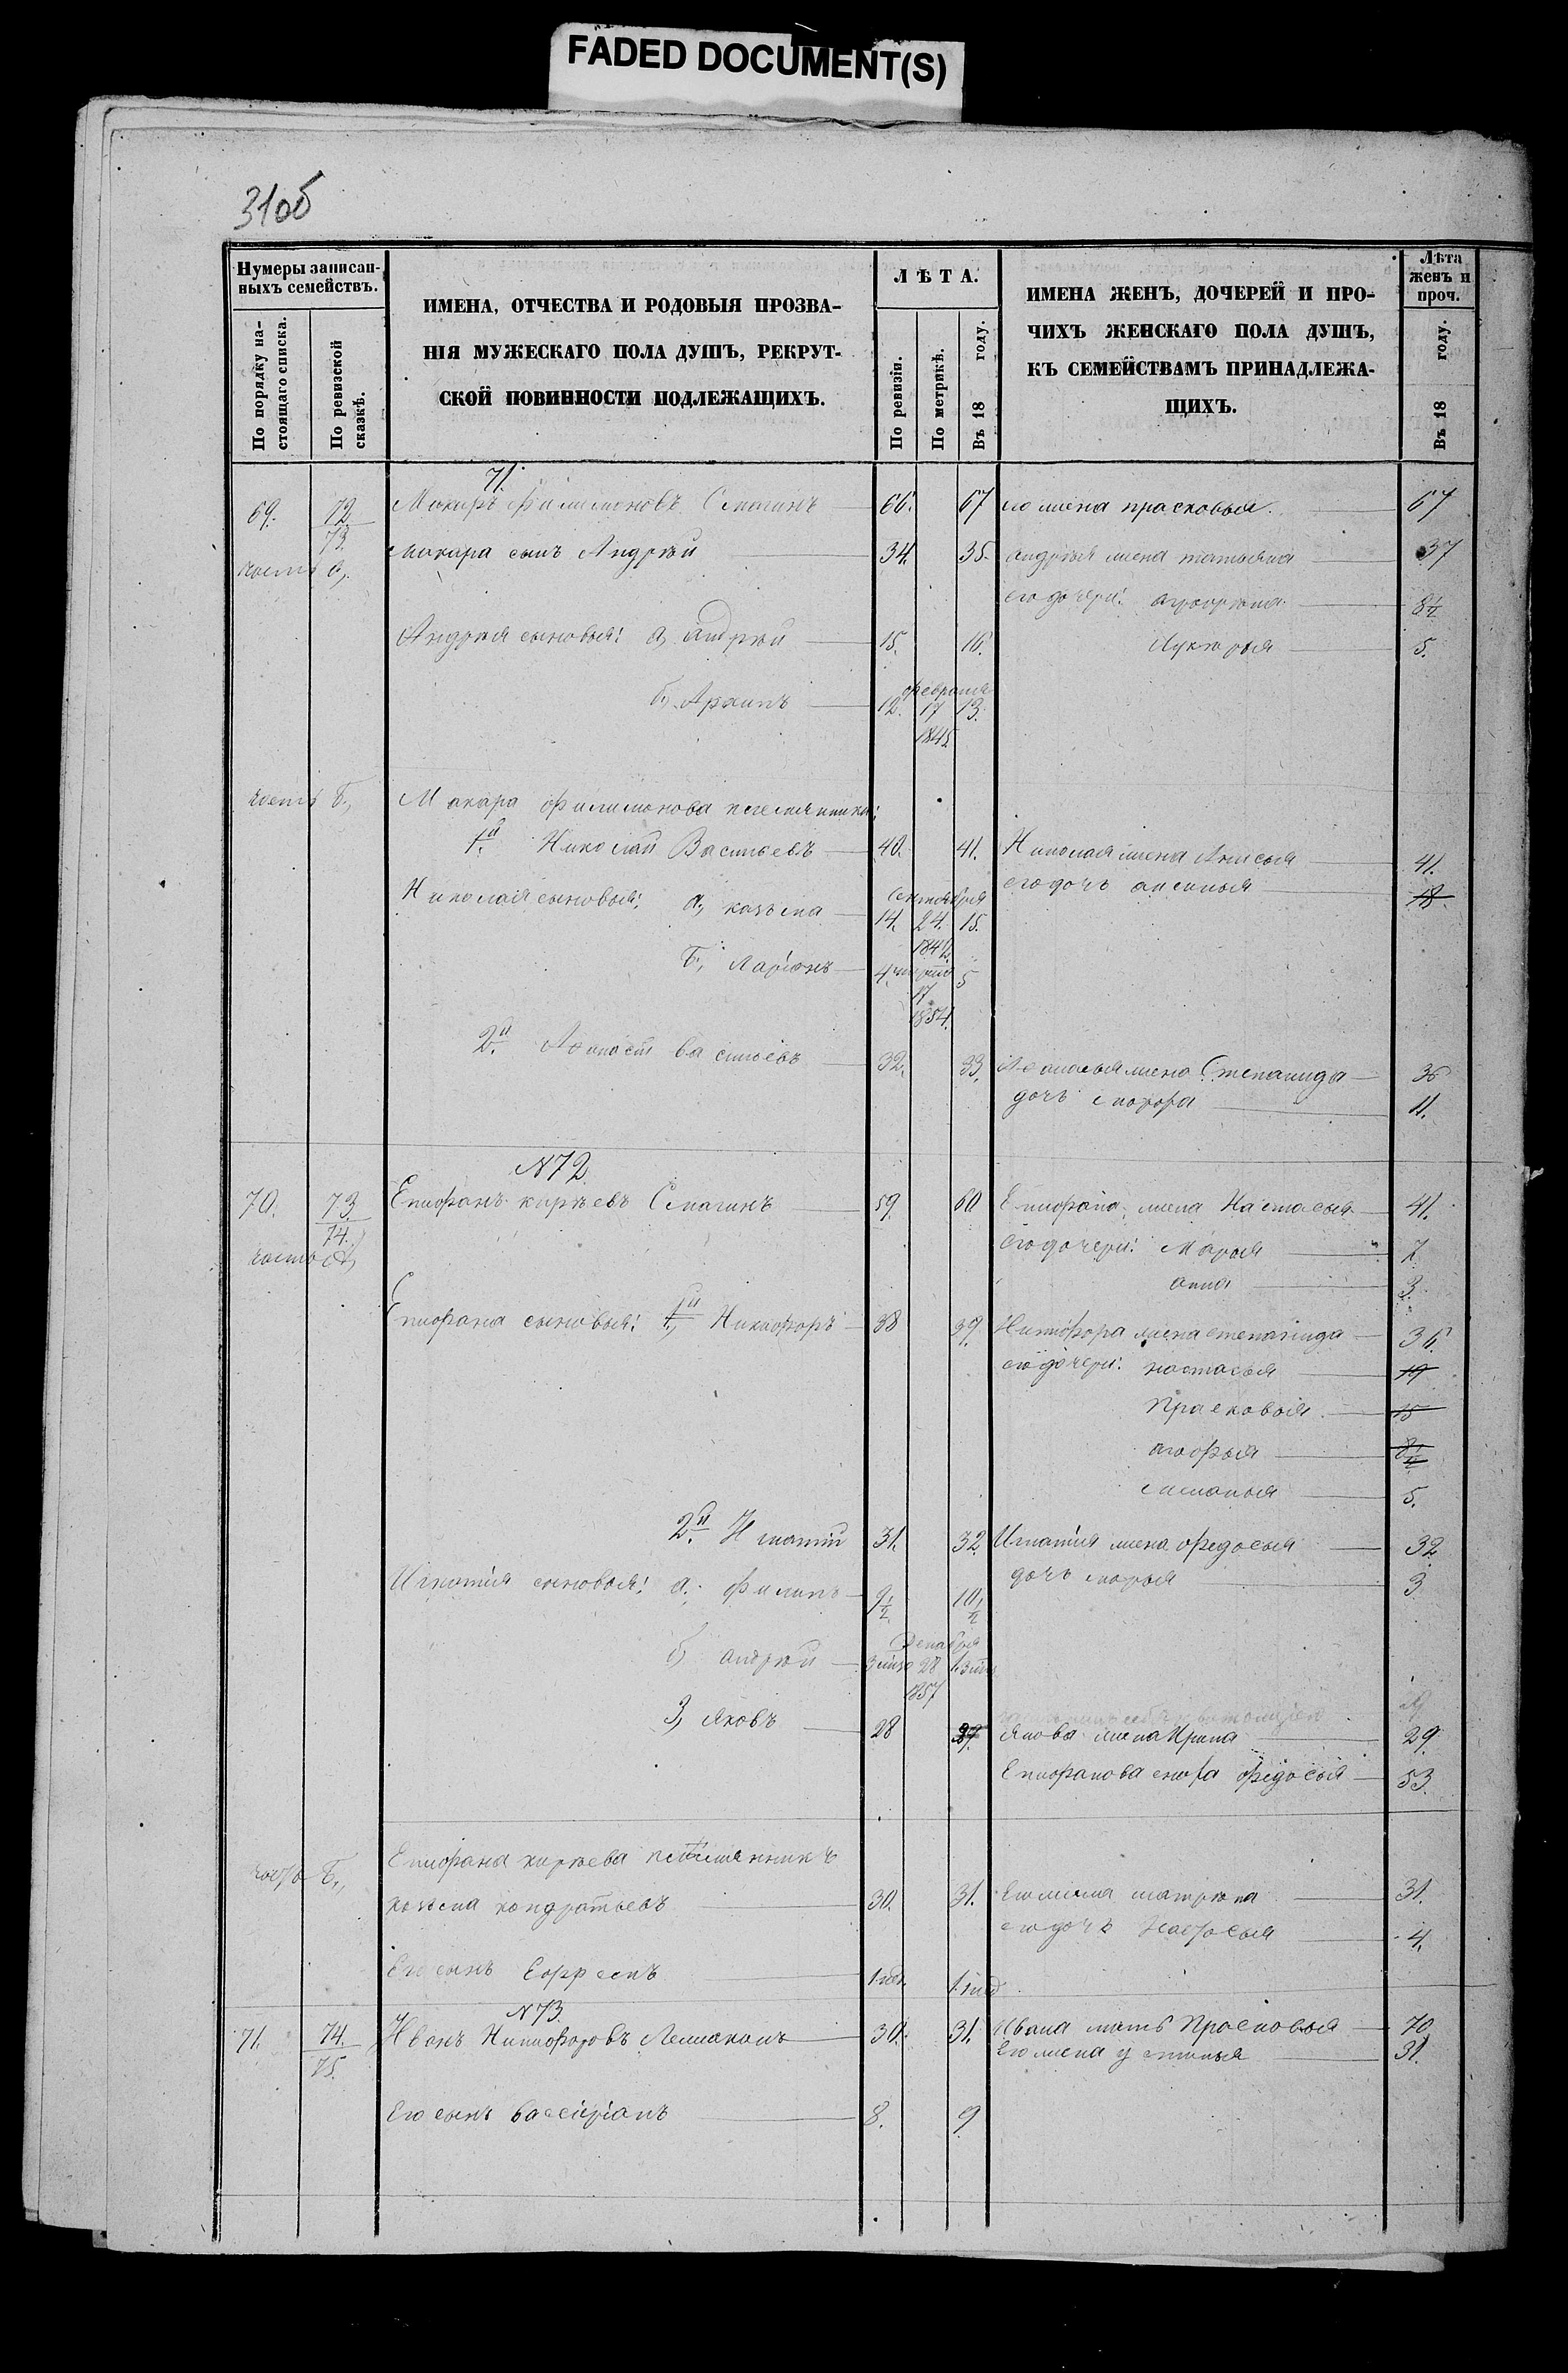 FADED DOCUMENT(S)
31об
Нумеры записан-
ныхъ семействъ.
По порядку на-
стоящаго списка.
По ревизской
сказкѣ.
ИМЕНА, ОТЧЕСТВА И РОДОВЫЯ ПРОЗВА-
НІЯ МУЖЕСКАГО ПОЛА ДУШЪ, РЕКРУТ-
СКОЙ ПОВИННОСТИ ПОДЛЕЖАЩИХЪ.
ЛѢТА.
По ревизіи.
По метрикѣ.
Въ 18 году.
ИМЕНА ЖЕНЪ, ДОЧЕРЕЙ И ПРО-
ЧИХЪ ЖЕНСКАГО ПОЛА ДУШЪ,
КЪ СЕМЕЙСТВАМЪ ПРИНАДЛЕЖА-
ЩИХЪ.
Лѣта
женъ и
проч.
Въ 18 году.
71.
69. 72 Макаръ Филимоновъ Смагинъ 66. 67 его жена прасковья 67
73
часть а, макара сынъ Андрѣй 34. 35. андрѣя жена татьяна 37
его дочери: 8½
Андрѣя сыновья: а, андрѣй 15. 16. Лукерья 5.
февраля
б, Архипъ 12. 17 13.
1845
часть б, Макара филимонова племянники:
1й Николай Васильевъ 40. 41. Николая жена Анисья 41.
его дочь аксинья 18
Николая сыновья: а, козьма 14. 24. 15.
сентября
184
б, Ларіонъ 4 марта 5
17
1854.
2й Афанасій васильевъ 32. 33. Афанасья жена Степанида 36
дочь 11.
N 72
70. 73 Епифанъ кирѣевъ Смагинъ 59. 60 Епифана жена Настасья 41.
74.
часть а, его дочери: Марья 7
анна 3.
Епифана сыновья: 1й Никифоръ 38 39. Никифора жена степанида 36.
его дочери: настасья 19
Прасковья 15
8½
5.
2й Игнатій 31. 32. Игнатія жена федосья 32
дочь марья 3
Игнатія сыновья: а. Филипъ 9½ 10½
Декабря
б, андрѣй 28
1857
3, яковъ 28 29. якова жена Ирина 29.
Епифанова сноха федосья 53.
часть б., Епифана кирѣева племянникъ
козьма кондратьевъ 30. 31. Его жена матрена 31.
его дочь 4.
Его сынъ 1 год. 1 год
N 73.
71. 74. Иванъ Никифоровъ 30. 31. Ивана мать Прасковья 70
75. Его жена устинья 31.
Его сынъ 8. 9